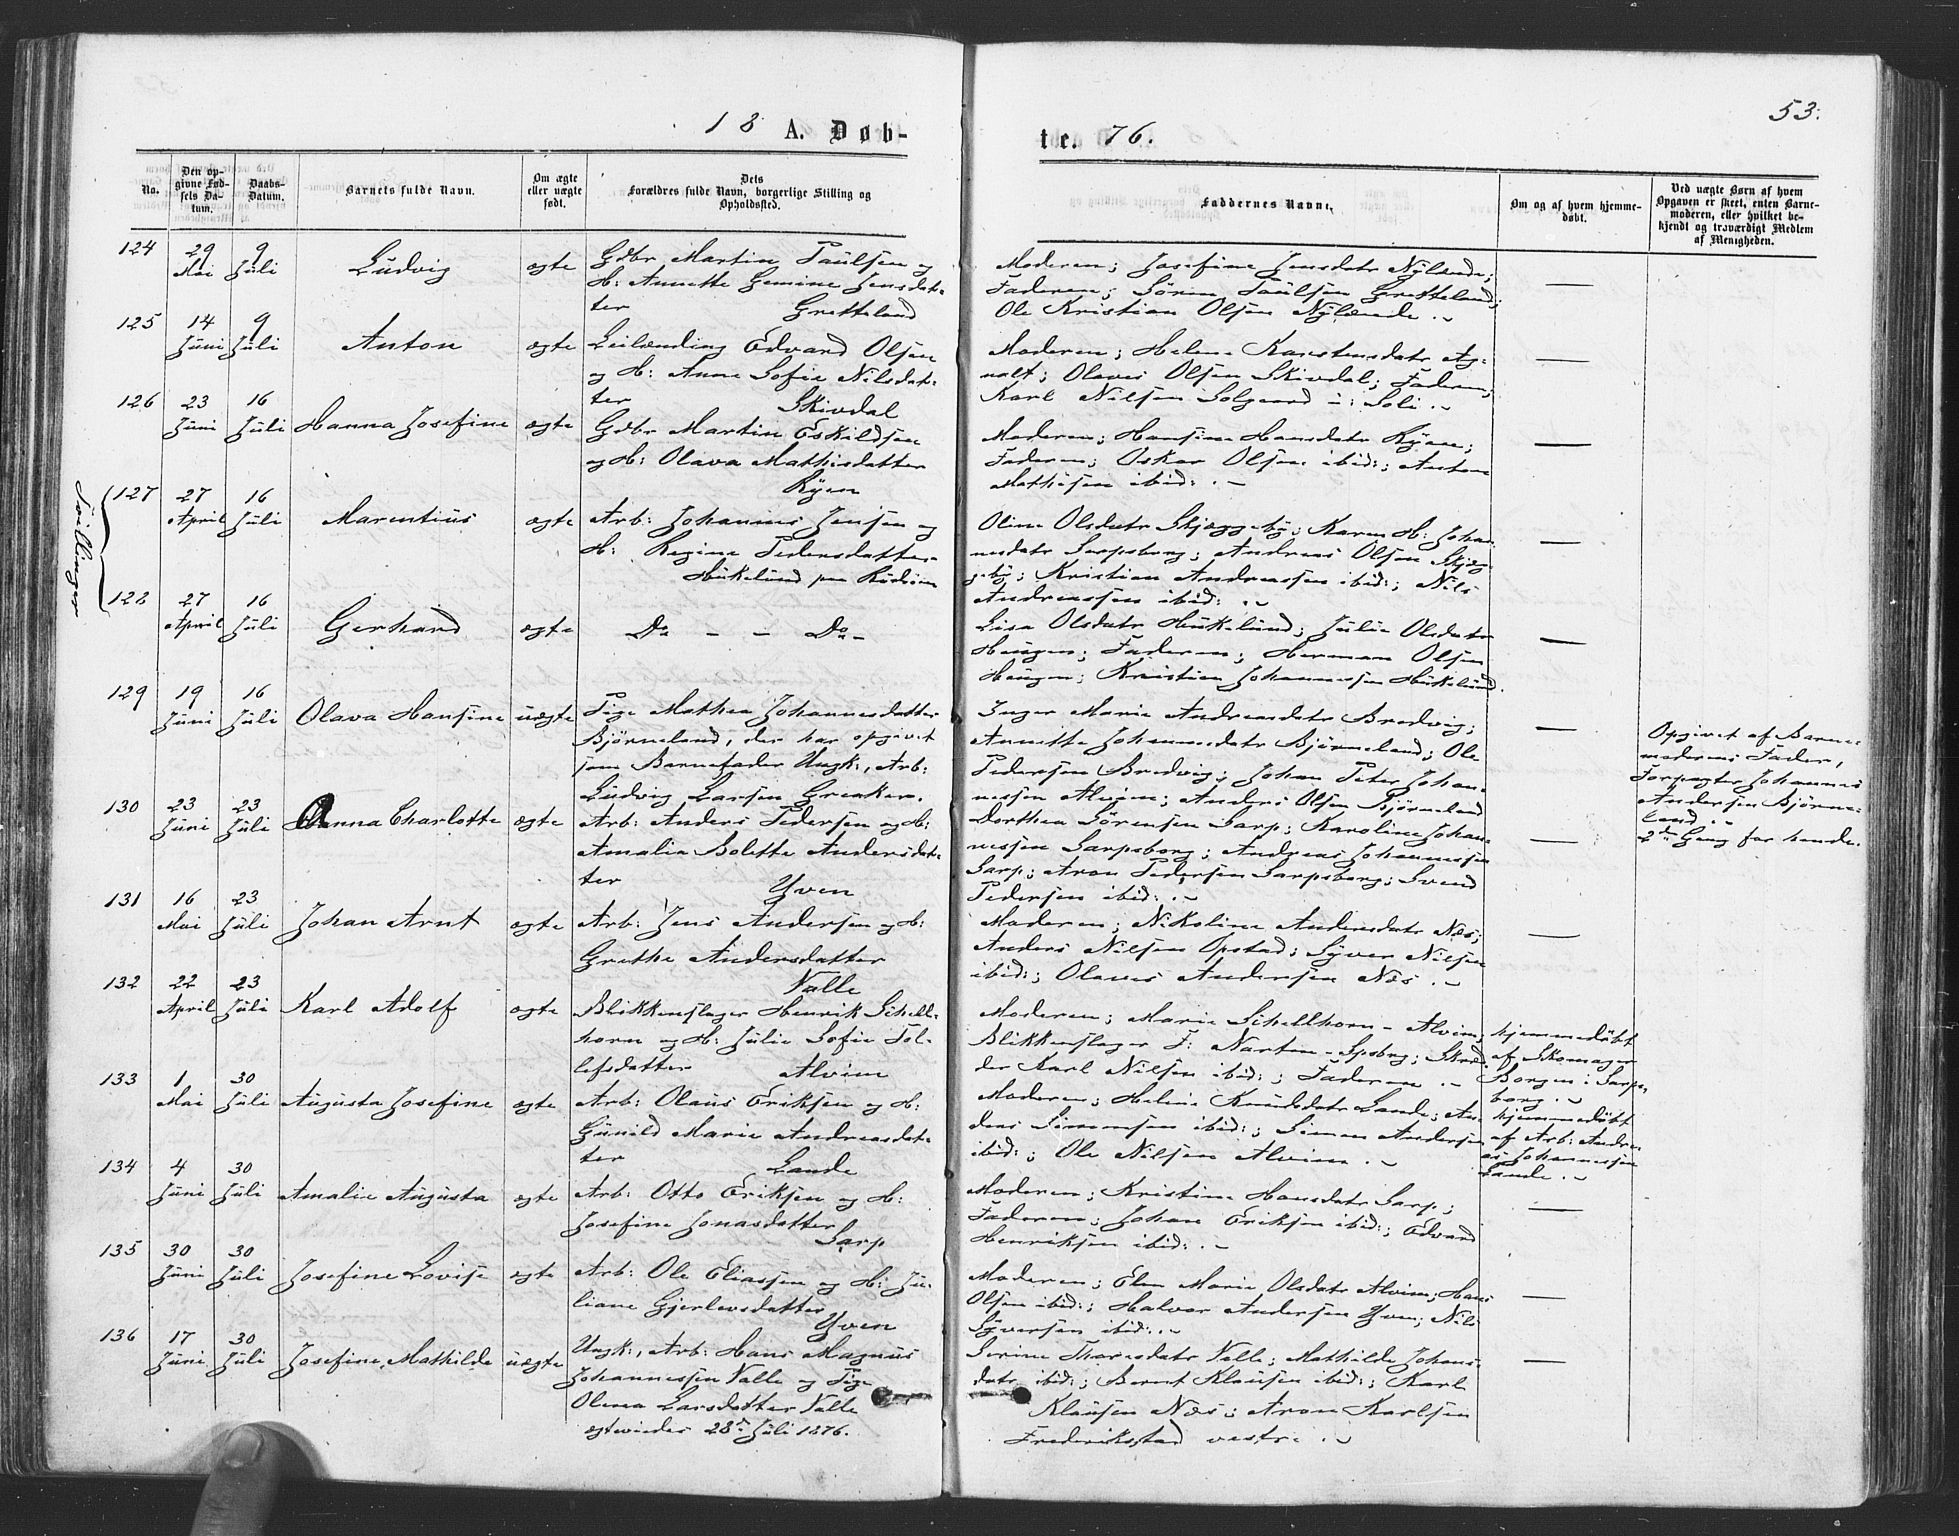 53.
18 A. Døb-
te. 76.
No.
Den op-
givne Fød-
sels Da-
tum.
Daabs-
Datum.
Barnets fulde Navn.
Om ægte
eller uægte
født.
Dets
Forældres fulde Navn, borgerlige Stilling og
Opholdssted.
Faddernes Navne.
Om og af hvem hjemme-
døbt.
Ved uægte Børn af hvem
Opgaven er skeet, enten Barne-
moderen, eller hvilket be-
kjendt og troværdigt Medlem
af Menigheden.
124 29 Mai 9 Juli Ludvig ægte
Gdbr Martin Paulsen og
H: Annette Gemine Jensdat-
ter Gretteland
Moderen; Josefine Jensdatr Nylænde;
Faderen; Søren Paulsen Gretteland;
Ole Kristian Olsen Nylænde.
—
125 14 Juni 9 Juli Anton ægte
Leilænding Edvard Olsen
og H: Anne Sofie Nilsdat-
ter Skivdal
Moderen; Helene Karstensdatr Ag-
nalt; Olaves Olsen Skivdal; Faderen;
Karl Nilsen Solgaard i: Soli.
—
126 23 Juni 16 Juli Hanna Josefine ægte
Gdbr Martin Eskildsen
og H: Olava Mathisdatter
Ryen
Moderen; Hansine Hansdatr Ryen;
Faderen; Oskar Olsen ibid:; Anton
Mathisen ibid:.
—
Tvillinger
127 27 April 16 Juli Marentius ægte
Arb: Johannes Jensen og
H: Regine Pedersdatter
Hukelund
Oline Olsdatr Skjæggeby; Karen H: Johan-
nesdatr Sarpsborg; Andreas Olsen Skjæg-
geby; Kristian Andreassen ibid:; Nils
Andreassen ibid:.
—
128 27 April 16 Juli Gerhard ægte
Do - - Do -
Lisa Olsdatr Hukelund; Julie Olsdatr
Haugen; Faderen; Herman Olsen
Haugen; Kristian Johannessen Hukelund.
—
129 19 Juni 16 Juli Olava Hansine uægte
Pige Mathea Johannesdatter
Bjørneland, der har opgivet
som Barnefader Ungk:, Arb:
Ludvig Larsen Greaker.
Inger Marie Andreasdatr Bredvig;
Annette Johannesdatr Bjørneland; Ole
Pedersen Bredvig; Johan Peter Johan-
nessen Alvim; Anders Olsen Bjørneland
—
Opgivet af Barne-
moderens Fader,
Forpagter Johannes
Andersen Bjørne-
land.
2den Gang for hende.
130 23 Juni 23 Juli Anna Charlotte ægte
Arb: Anders Pedersen og H:
Amalie Bolette Andersdat-
ter Yven
Dorthea Sørensen Sarp; Karoline Johan-
nessen Sarpsborg; Andreas Johannessen
Sarp; Aron Pedersen Sarpsborg; Svend
Pedersen ibid:.
—
131 16 Mai 23 Juli Johan Arnt ægte
Arb: Jens Andersen og H:
Grethe Andersdatter
Valle
Moderen; Nikoline Andersdatr Næs;
Anders Nilsen Opstad; Syver Nilsen
ibid:; Olaves Andersen Næs.
—
132 22 April 23 Juli Karl Adolf ægte
Blikkenslager Henrik Schell-
horn og H: Julie Sofie Tol-
lefsdatter Alvim
Moderen; Marie Schellhorn - Alvim;
Blikkenslager F: Narten - Spsbrg; Skræd-
der Karl Nilsen ibid:; Faderen.
hjemmedøbt
af Skomager
Borgen i Sarps-
borg.
133 1 Mai 30 Juli Augusta Josefine ægte
Arb: Olaus Eriksen og H:
Gunild Marie Andreasdat-
ter Lande
Moderen; Helene Knudsdatr Lande; An-
ders Simensen ibid:; Simen Andersen
ibid:; Ole Nilsen Alvim.
hjemmedøbt
af Arb: Andre-
as Johannessen
Lande.
134 4 Juni 30 Juli Amalie Augusta ægte
Arb: Otto Eriksen og H:
Josefine Jonasdatter
Sarp
Moderen; Kristine Hansdatr Sarp;
Faderen; Johan Eriksen ibid:; Edvard
Henriksen ibid:.
—
135 30 Juni 30 Juli Josefine Lovise ægte
Arb: Ole Eliassen og H: Ju-
liane Gjerlevsdatter
Yven
Moderen; Elen Marie Olsdatr Alvim; Hans
Olsen ibid:; Halvor Andersen Yven; Nils
Syversen ibid:.
—
136 17 Juni 30 Juli Josefine Mathilde uægte
Ungk:, Arb: Hans Magnus
Johannessen Valle og Pige
Olena Larsdatter Valle
ægteviedes 28de Juli 1876.
Serine Thoresdatr Valle; Mathilde Johans-
datr ibid:; Bernt Klausen ibid:; Karl
Klausen Næs; Aron Karlsen
Frederikstad vestre.
—